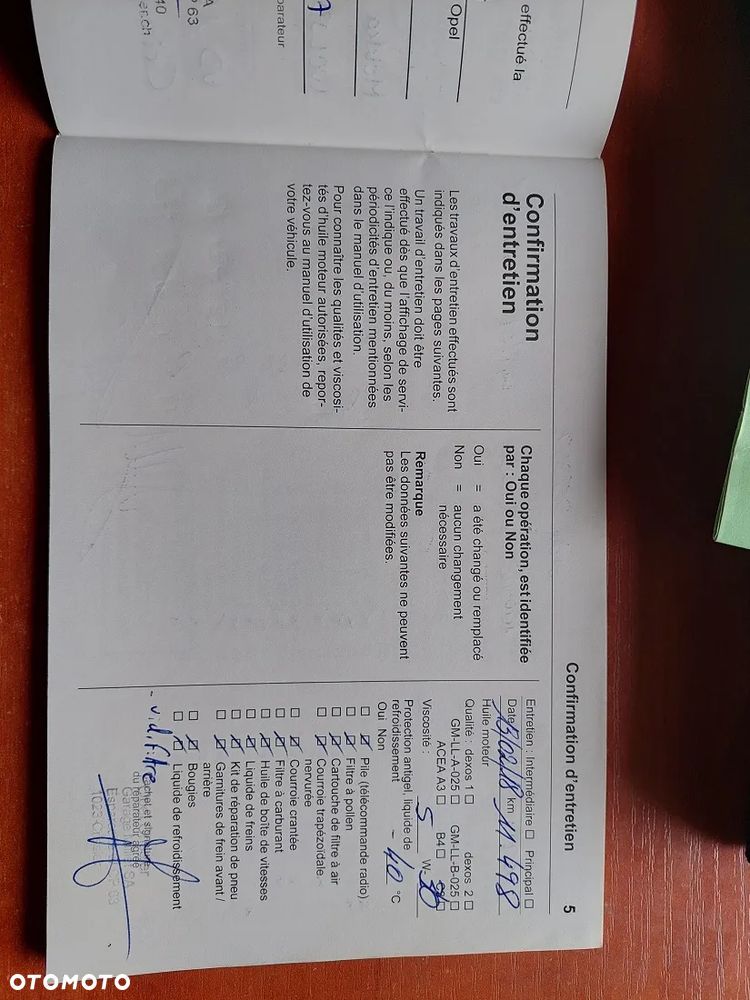 effectué la
Opel
parateur
7
P 63
40
er.ch
Confirmation d'entretien
5
Confirmation
d'entretien
Les travaux d'entretien effectués sont
indiqués dans les pages suivantes.
Un travail d'entretien doit être
effectué dès que l'affichage de servi-
ce l'indique ou, du moins, selon les
périodicités d'entretien mentionnées
dans le manuel d'utilisation.
Pour connaître les qualités et viscosi-
tés d'huile moteur autorisées, repor-
tez-vous au manuel d'utilisation de
votre véhicule.
Chaque opération, est identifiée
par : Oui ou Non
Oui = a été changé ou remplacé
Non = aucun changement
nécessaire
Remarque
Les données suivantes ne peuvent
pas être modifiées.
Entretien : Intermédiaire ☐ Principal ☐
Date 15/02/18 km 11.498
Huile moteur
Qualité : dexos 1 ☐ dexos 2 ☐
GM-LL-A-025 ☐ GM-LL-B-025 ☐
ACEA A3 ☐ B4 ☐
Viscosité : 5 W- 30
Protection antigel, liquide de
refroidissement - 40 °C
Oui Non
☐ ☑ Pile (télécommande radio)
☐ ☑ Filtre à pollen
☐ ☑ Cartouche de filtre à air
☐ ☑ Courroie trapézoïdale
nervurée
☐ ☑ Courroie crantée
☐ ☑ Filtre à carburant
☐ ☑ Huile de boîte de vitesses
☐ ☑ Liquide de freins
☐ ☑ Kit de réparation de pneu
☐ ☑ Garnitures de frein avant /
arrière
☐ ☑ Bougies
☐ ☑ Liquide de refroidissement
- vid, filtre
Cachet et signature
du réparateur agréé
Garage SA
1023
OTOMOTO